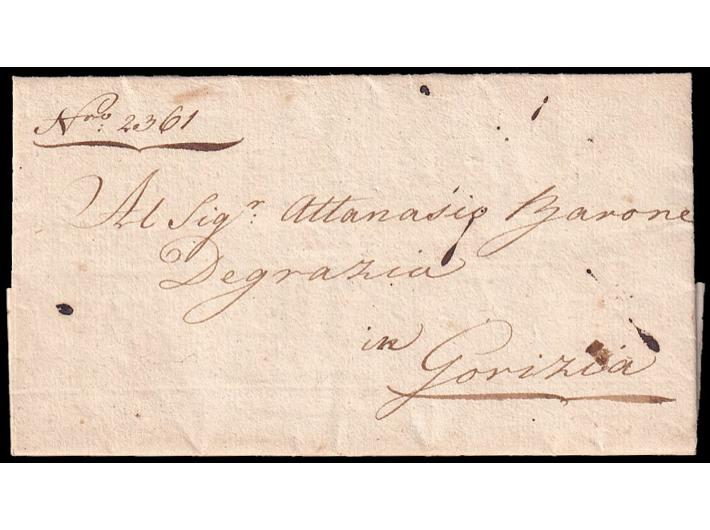 Nro. 2361
Al Sigr. Attanasio Barone
Degrazia
in
Gorizia